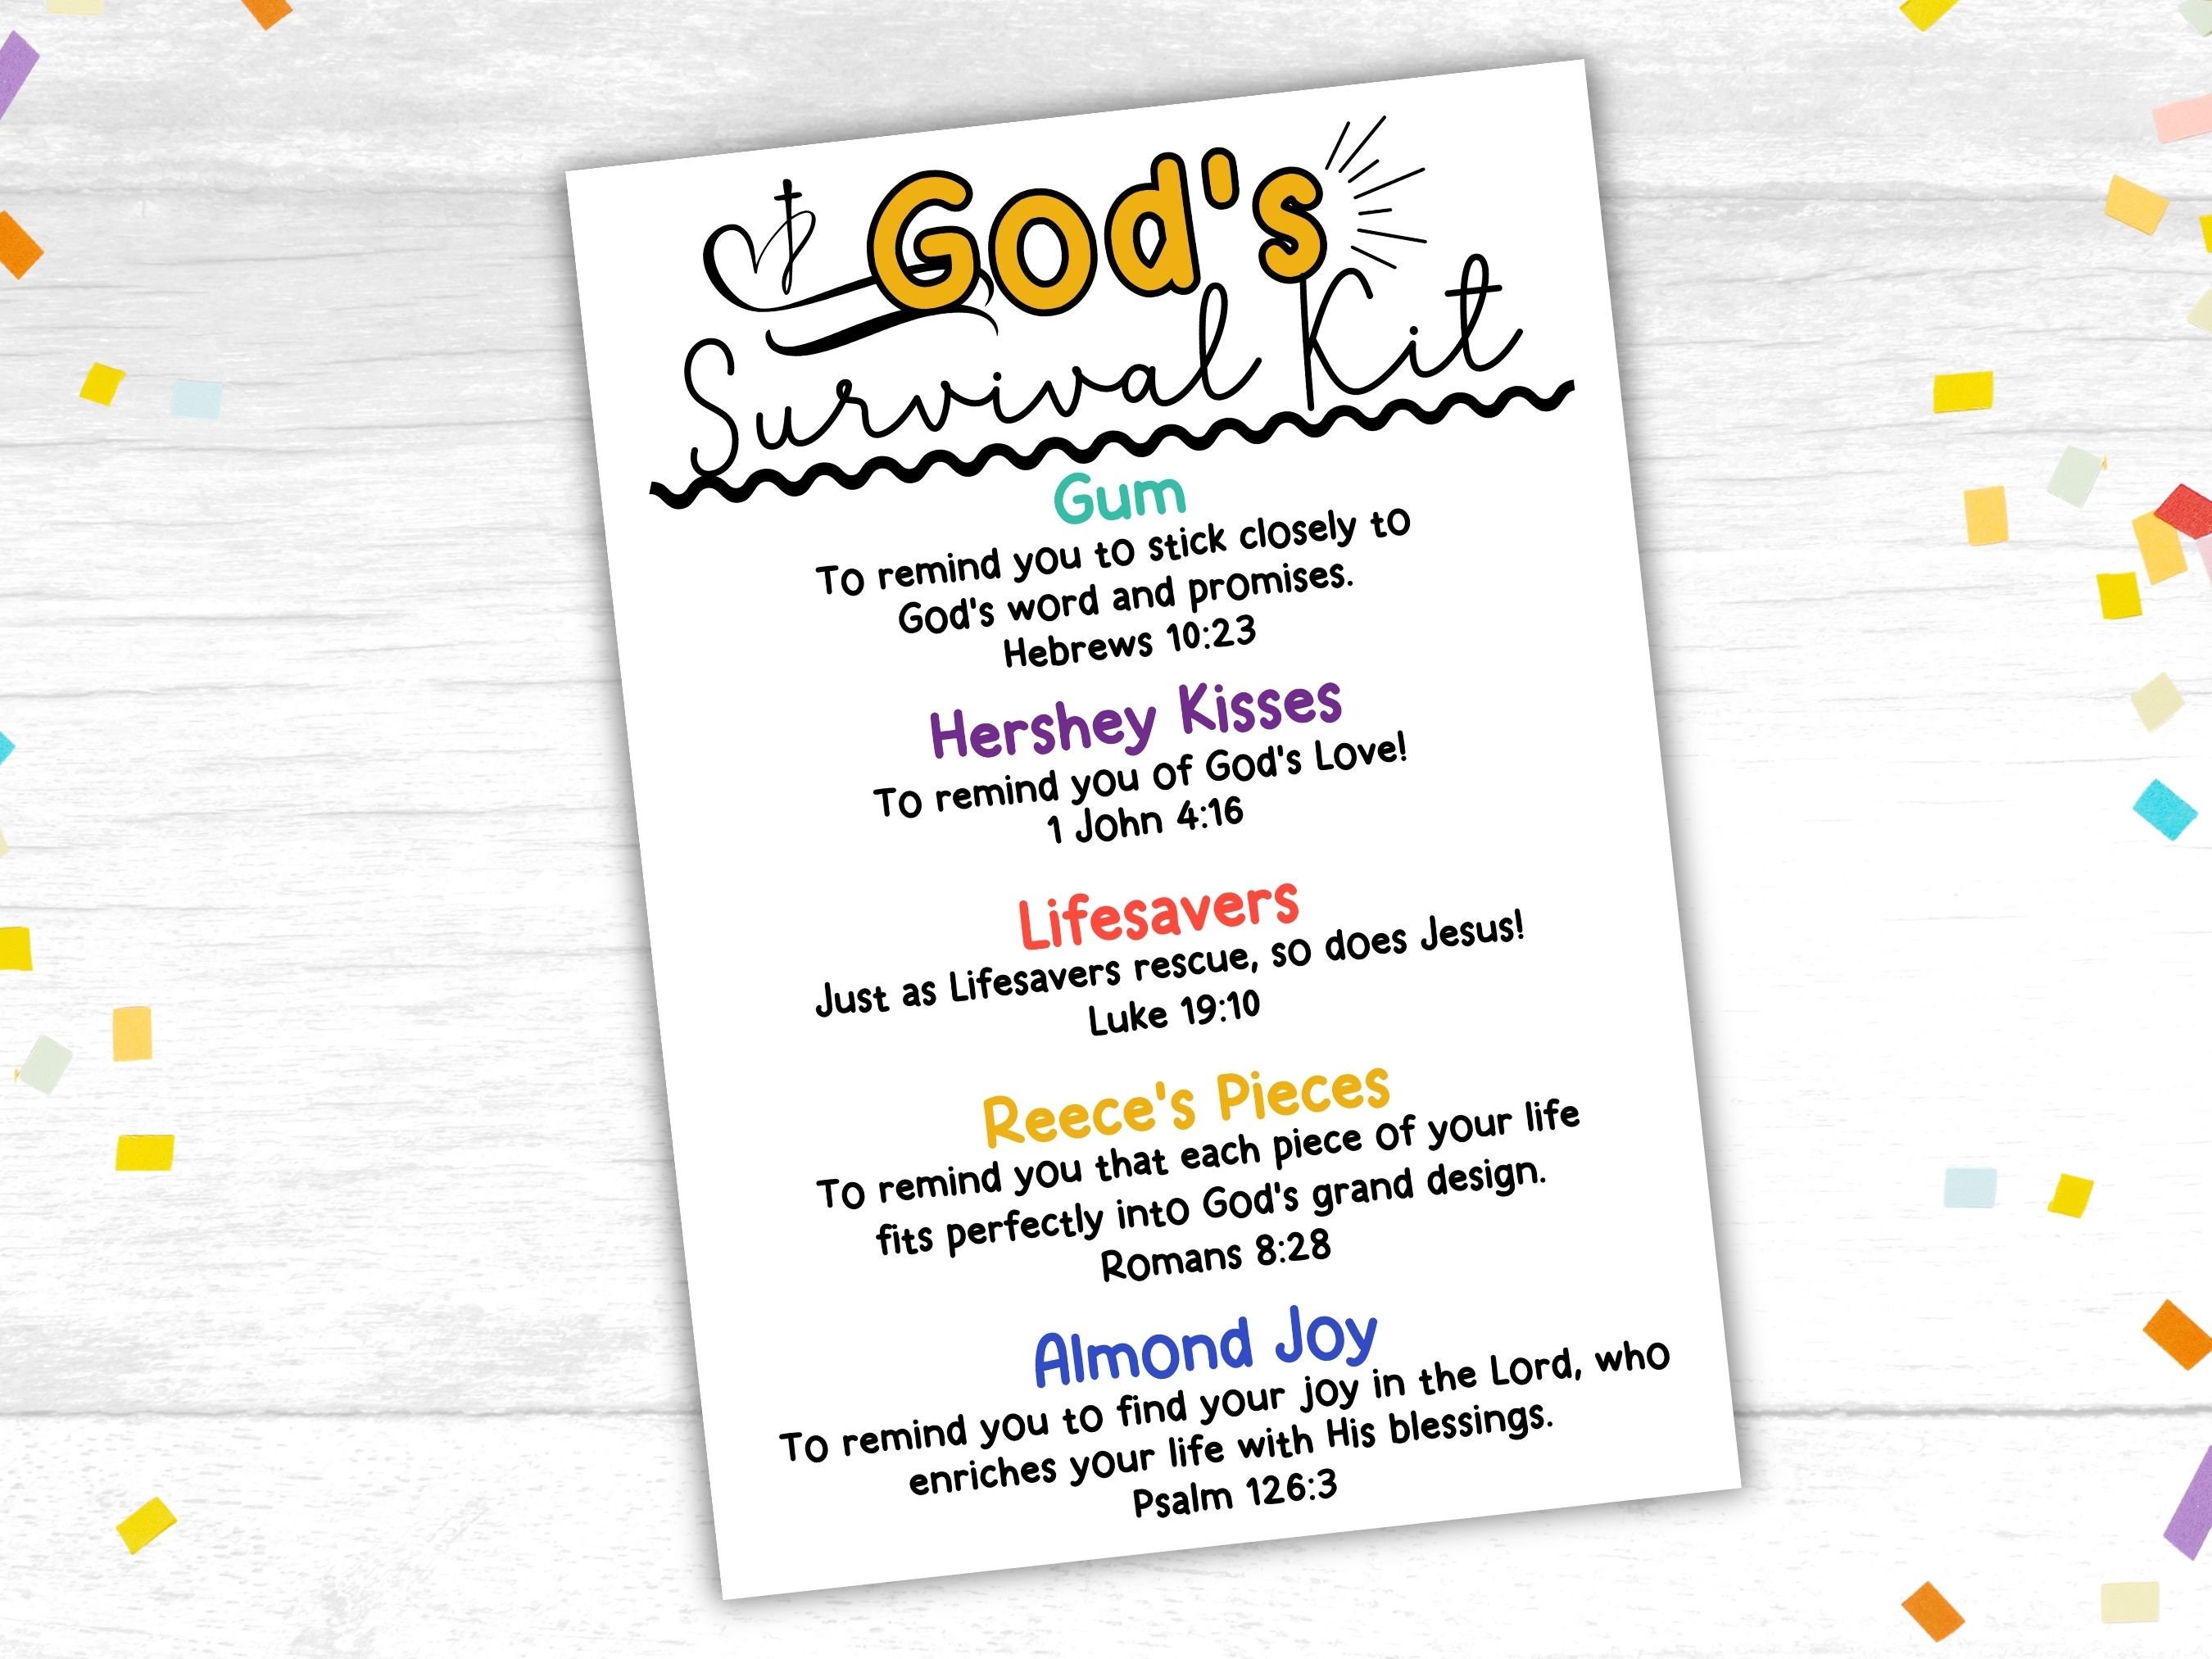 God's
Survival Kit
Gum
To remind you to stick closely to
God's word and promises.
Hebrews 10:23
Hershey Kisses
To remind you of God's Love!
1 John 4:16
Lifesavers
Just as Lifesavers rescue, so does Jesus!
Luke 19:10
Reece's Pieces
To remind you that each piece of your life
fits perfectly into God's grand design.
Romans 8:28
Almond Joy
To remind you to find your joy in the Lord, who
enriches your life with His blessings.
Psalm 126:3